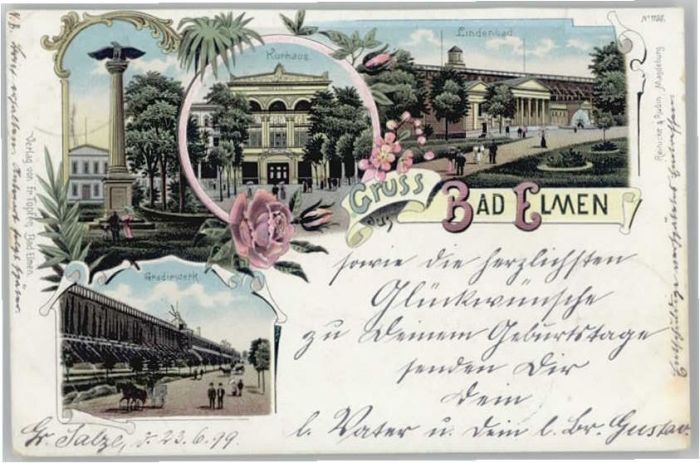 Kurhaus.
Lindenbad.
Nº 1195.
Gruss
aus
BAD ELMEN
Gradierwerk.
Verlag von Fr. Bad Elmen.
Reinicke & Rubin, Magdeburg
sowie die herzlichsten
Glückwünsche
zu Deinem Geburtstage
senden Dir
Dein
l. Vater u. Dein l. Br. Gustav.
Gr. Salze, d. 23.6.99.